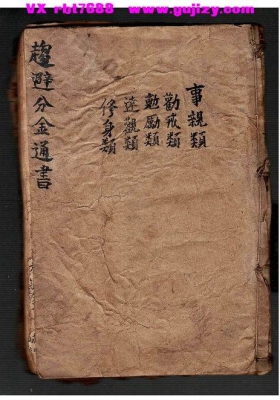 VX rbt7688 www.gujizy.com
事親類
勸戒類
勉勵類
達觀類
修身類
趨避分金通書